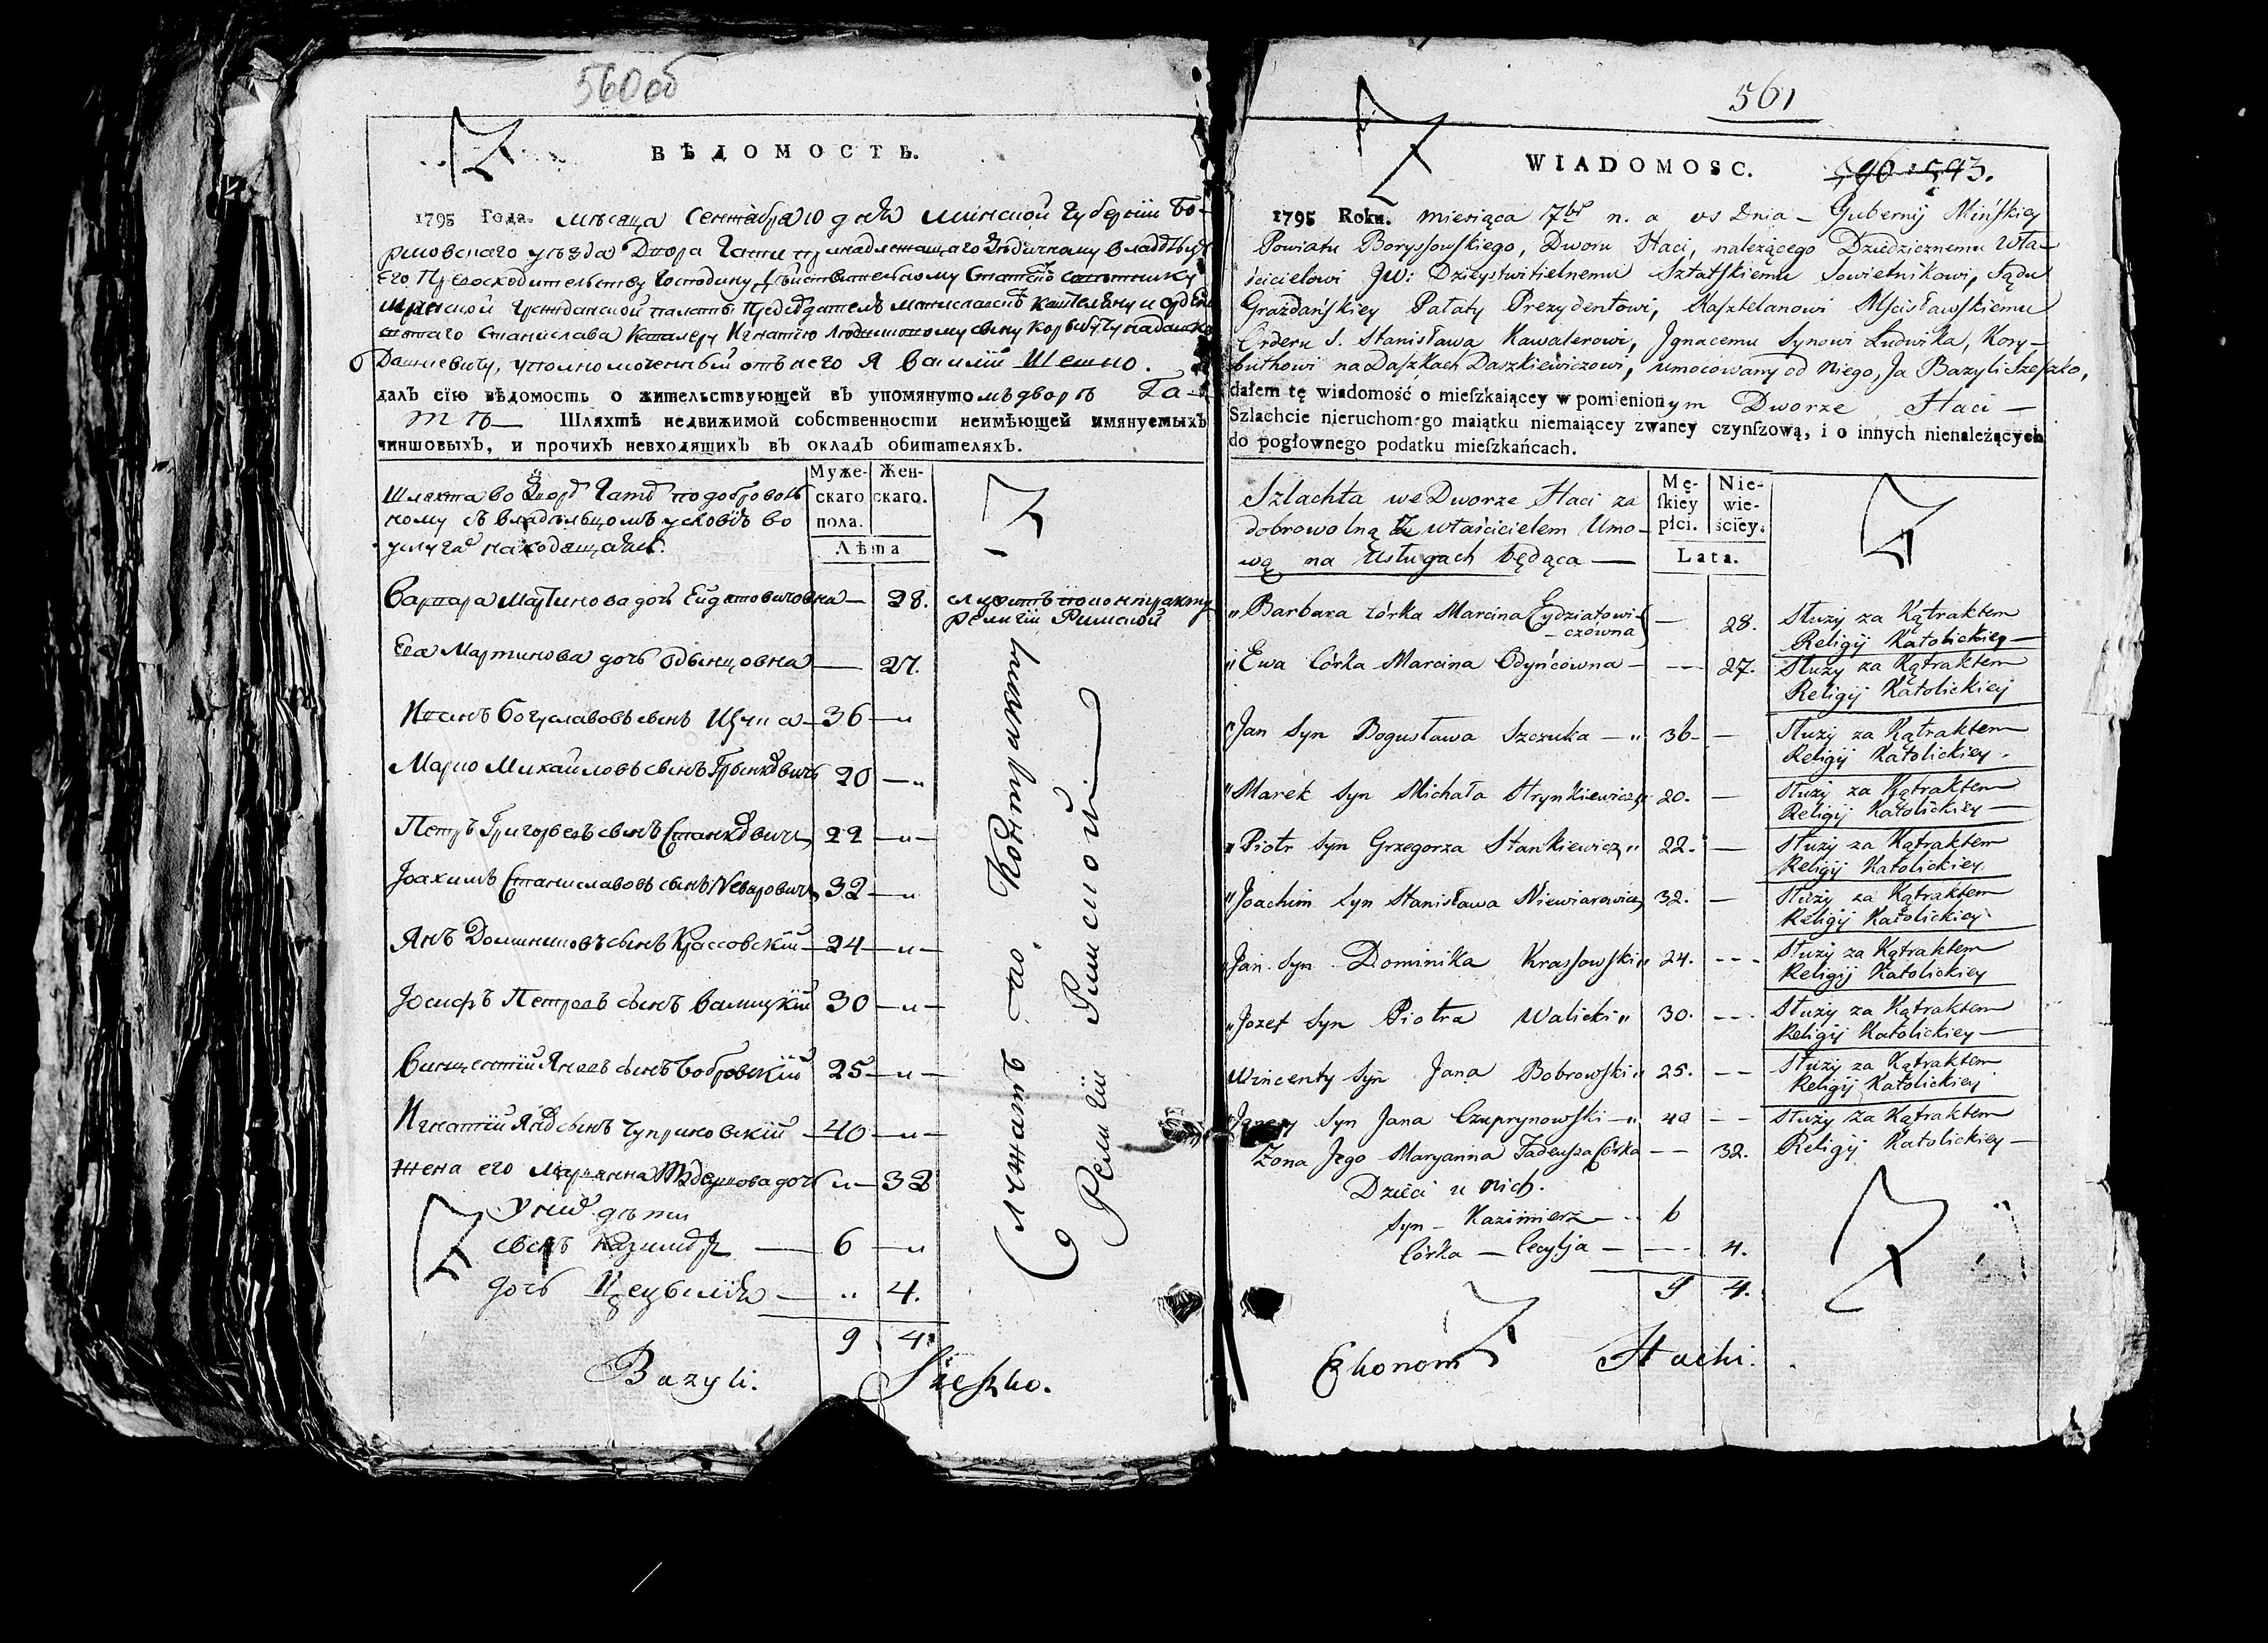 560об
ВѢДОМОСТЬ.
1795 Года. мѣсяца Сентября 10 дня Минской Губернїи Бо-
рисовскаго уѣзда Двора Гати принадлежащаго
Его Превосходительству Господину Дѣйствительному
Минской Гражданской палаты Предсѣдателю
святаго Станислава Кавалеру Игнатїю сыну Корыбуту
Дашкевичу, уполномоченный отъ него Я Василїй Шешко.
далъ сїю вѣдомость о жительствующей въ упомянутомъ дворѣ Га-
тѣ — Шляхтѣ недвижимой собственности неимѣющей имянуемыхъ
чиншовыхъ, и прочихъ невходящихъ въ окладъ обитателяхъ.
Шляхта во Дворѣ Гатѣ по доброволь
ному съ владѣльцомъ условїю во
услугахъ находящаяся.
Муже-
скаго
пола.
Жен-
скаго.
Лѣта
Варвара Мартинова дочь — 28. служитъ по контракту
религїи Римской
Ева Мартинова дочь Одынцовна — 27.
Иванъ Богуславовъ сынъ Щука — 36 — "
Марко Михайловъ сынъ Грынкевичъ 20 — "
Петръ Григорьевъ сынъ Станкевичъ 22 — " —
Іоахимъ Станиславовъ сынъ 32 — "
Янъ Доминиковъ сынъ Крассовскїй — 24 — " —
Іосифъ Петровъ сынъ Валицкїй 30 — " —
Винцентїй Яновъ сынъ Бобровскїй 25 — " —
Игнатїй сынъ Чуприновскїй — 40 — " —
Жена его Марьянна дочь " — 32
У нихъ дѣти
сынъ Казимѣръ — 6 — "
дочь Цецылїя — " 4.
9 4
Служатъ по Контракту
Религїи Римской
Bazyli. Szeszko.
561
WIADOMOSC. 543.
1795 Roku. miesiąca 7br n. a vs Dnia — Gubernij Mińskiey
Powiatu Borysowskiego, Dworu Haci, należącego Dziedzicznemu Wła-
ścicielowi JW: Dzieystwitielnemu Sztatskiemu Sowietnikowi, Sądu
Grażdańskiey Pałaty Prezydentowi, Kasztelanowi Mścisławskiemu
Orderu S. Stanisława Kawalerowi, Jgnacemu Synowi Ludwika, Kory-
buthowi na Daszkach Daszkiewiczowi, umocowany od Niego, Ja Bazyli Szeszko,
dałem tę wiadomość o mieſzkaiącey w pomienionym Dworze Haci —
Szlachcie nieruchomego maiątku niemaiącey zwaney czynſzową, i o innych nienależących
do pogłownego podatku mieſzkańcach.
Szlachta we Dworze Haci za
dobrowolną z właścicielem Umo-
wą na Usługach będąca —
Mę-
ſkiey
płci.
Nie-
wie-
ściey.
Lata.
" Barbara córka Marcina Eydziatowi-
czowna — 28. Służy za Kątraktem
Religij Katolickiey —
" Ewa Córka Marcina Odyńcowna — — 27. Służy za Kątraktem
Religij Katolickiey
" Jan Syn Bogusława Szczuka — " 36 — Służy za Kątraktem
Religij Katolickiey.
" Marek Syn Michała Hrynkiewicz " 20. — Służy za Kątraktem
Religij Katolickiey —
" Piotr Syn Grzegorza Stankiewicz " 22. — Służy za Kątraktem
Religij Katolickiey
" Joachim Syn Stanisława Niewiarowicz 32. — Służy za Kątraktem
Religij Katolickiey
" Jan Syn Dominika Krassowski " 24. — Służy za Kątraktem
Religij Katolickiey
" Jozef Syn Piotra Walicki " 30. — Służy za Kątraktem
Religij Katolickiey —
Wincenty Syn Jana Bobrowski " 25. — Służy za Kątraktem
Religij Katolickiey
Syn Jana Czuprynowski — " 40 — Służy za Kątraktem
Żona Jego Maryanna Tadeusza Córka — 32. Religij Katolickiey —
Dzieci u nich.
Syn — Kazimierz — 6
Córka — Cecylja — — 4.
9 4.
Ekonom Hachi.